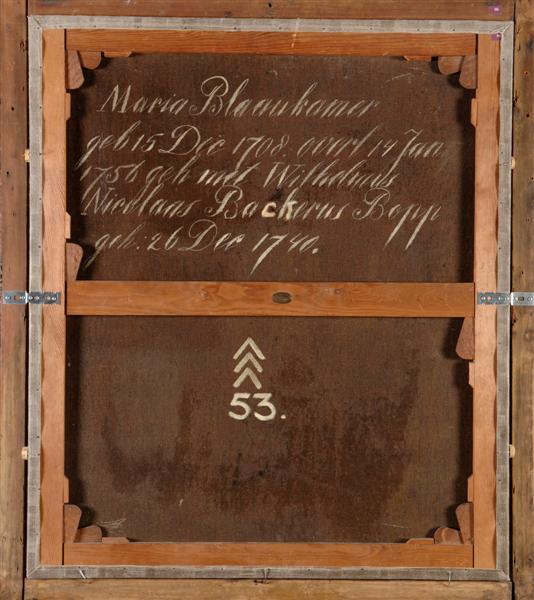 Maria Blaaukamer
geb 15 Dec 1708. overl 14 Jan
1756 geh met Wilhelmus
Nicolaas Backerus Bopp
geb: 26 Dec 1740.
53.